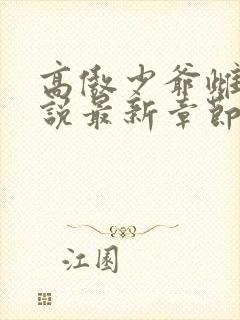 高傲少爷雌
说最新章节
江園